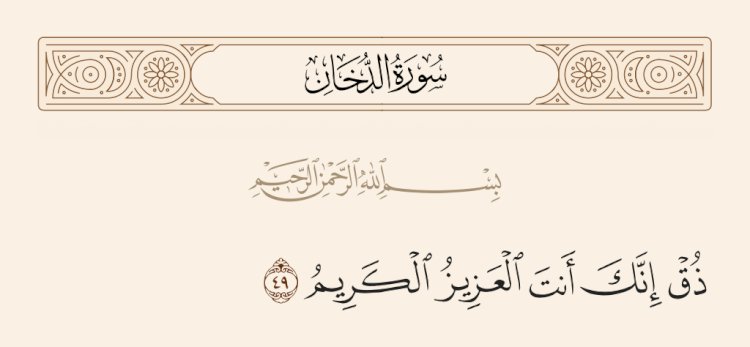 سُورَةُ الدُّخَانِ
بِسْمِ ٱللَّهِ ٱلرَّحْمَٰنِ ٱلرَّحِيمِ
ذُقْ إِنَّكَ أَنتَ ٱلْعَزِيزُ ٱلْكَرِيمُ ٤٩